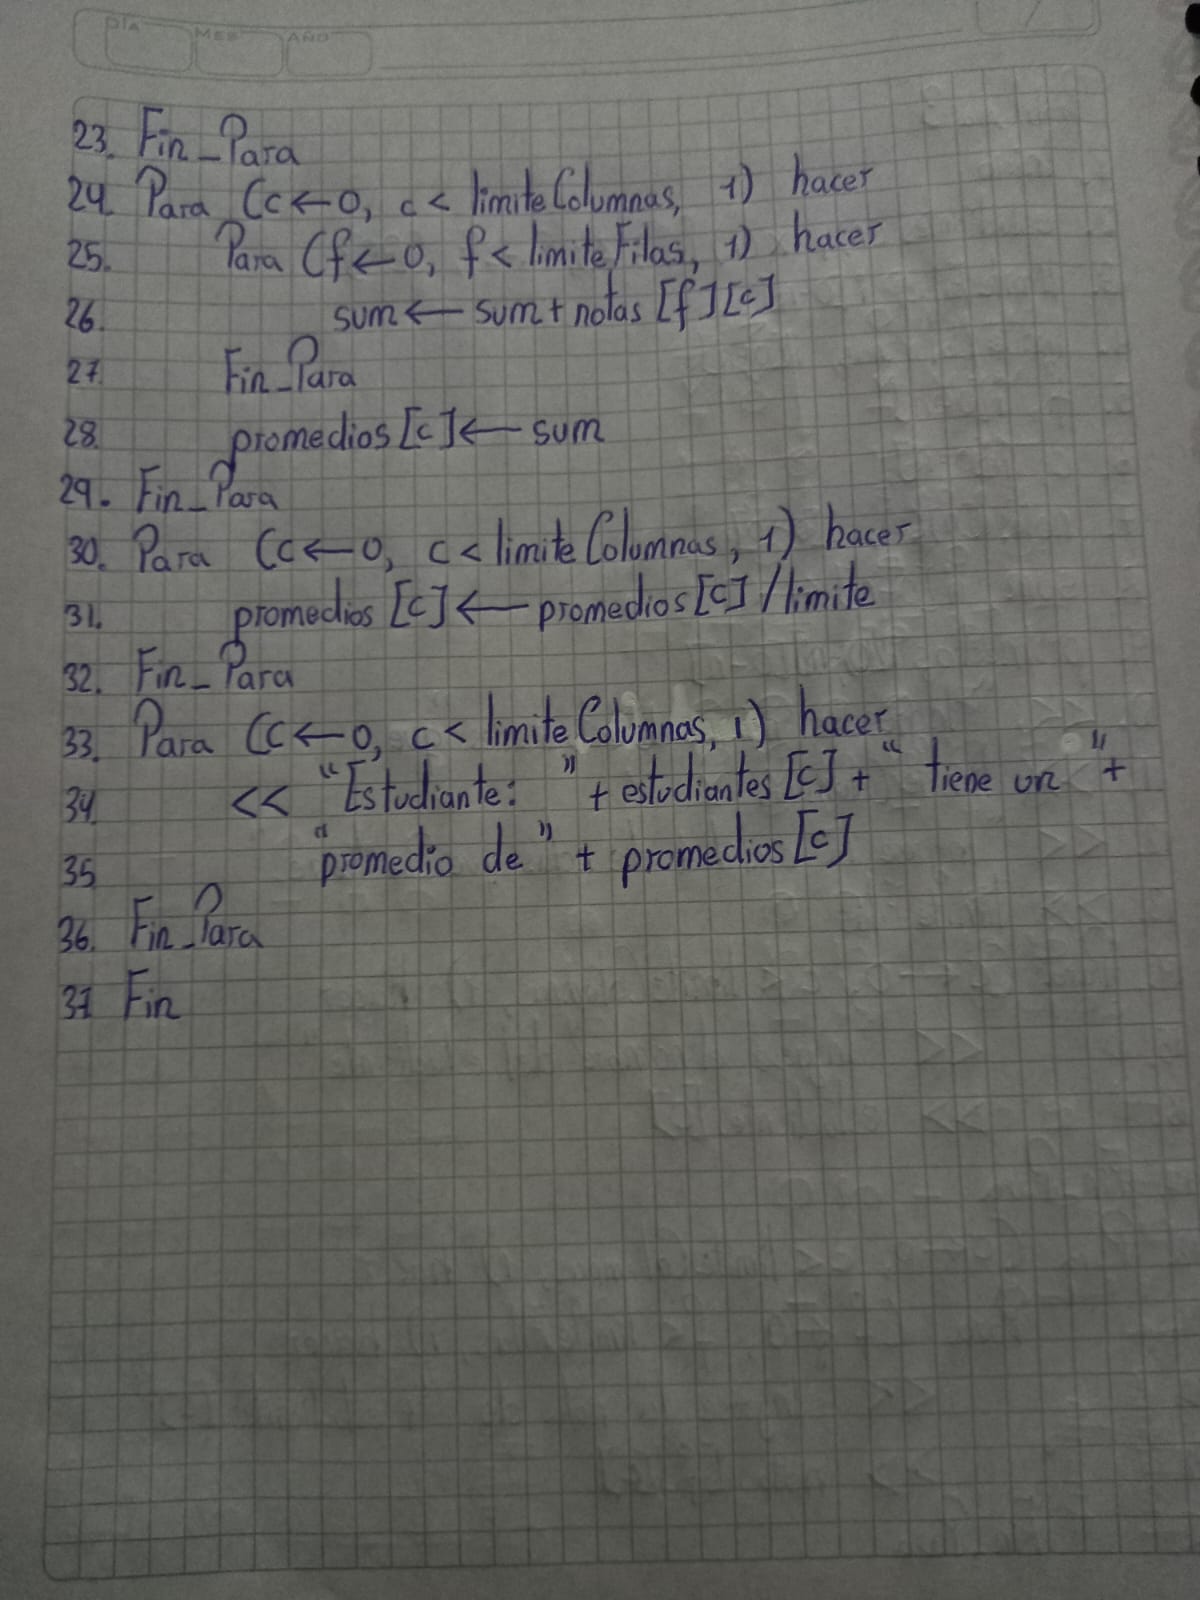 DÍA MES AÑO
23. Fin_Para
24. Para (c←0, c < limiteColumnas, 1) hacer
25. Para (f←0, f < limiteFilas, 1) hacer
26. sum ← sum + notas [f][c]
27. Fin_Para
28. promedios [c] ← sum
29. Fin_Para
30. Para (c←0, c < limiteColumnas, 1) hacer
31. promedios [c] ← promedios [c] / limite
32. Fin_Para
33. Para (c←0, c < limiteColumnas, 1) hacer
34. << "Estudiante: " + estudiantes [c] + " tiene un " +
35 "promedio de " + promedios [c]
36. Fin_Para
37 Fin